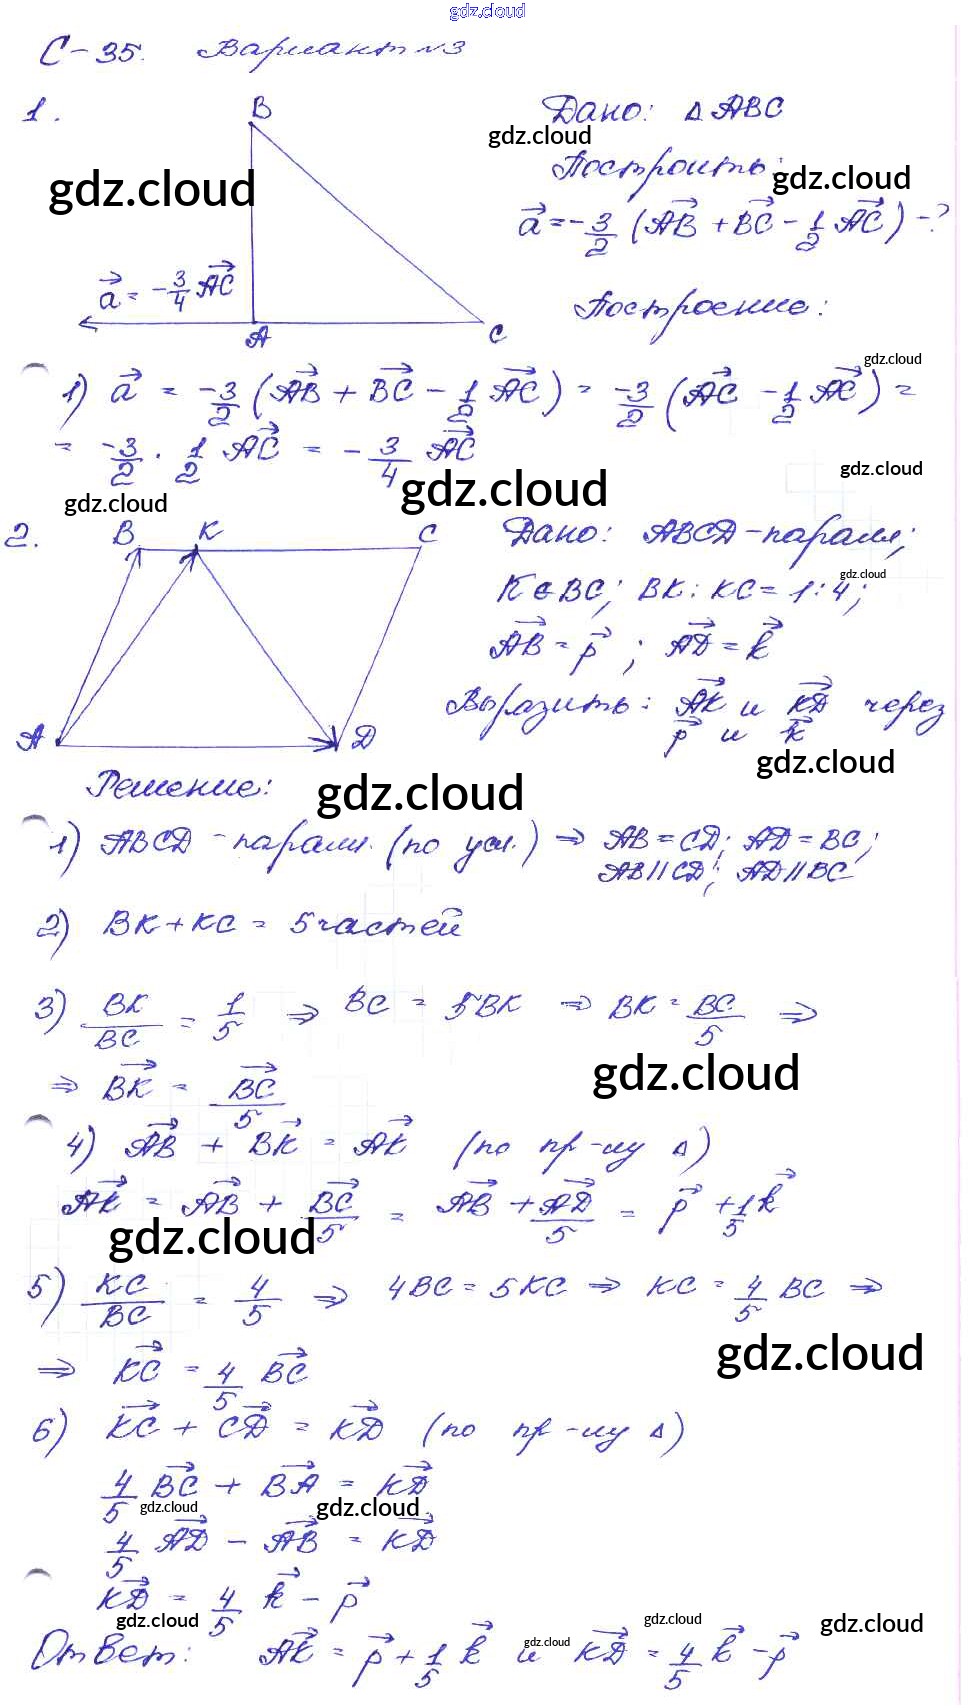 gdz.cloud
С-35. Вариант №3
1.
B
Дано: △ABC
gdz.cloud
Построить:
gdz.cloud
gdz.cloud
a⃗ = -3/2 (AB⃗ + BC⃗ - 1/2 AC⃗) - ?
a⃗ = -3/4 AC⃗
Построение:
A
C
gdz.cloud
1) a⃗ = -3/2 (AB⃗ + BC⃗ - 1/2 AC⃗) = -3/2 (AC⃗ - 1/2 AC⃗) =
= -3/2 · 1/2 AC⃗ = -3/4 AC⃗
gdz.cloud
gdz.cloud
gdz.cloud
2.
B K C
Дано: ABCD-паралл;
gdz.cloud
K∈BC; BK:KC=1:4;
AB⃗ = p⃗; AD⃗ = k⃗
Выразить: AK⃗ и KD⃗ через
p⃗ и k⃗
A D
gdz.cloud
Решение:
gdz.cloud
1) ABCD-паралл. (по усл.) ⇒ AB=CD; AD=BC;
AB||CD; AD||BC
2) BK+KC = 5частей
3) BK/BC = 1/5 ⇒ BC = 5BK ⇒ BK = BC/5 ⇒
⇒ BK⃗ = BC⃗/5
gdz.cloud
4) AB⃗ + BK⃗ = AK⃗ (по пр-лу △)
AK⃗ = AB⃗ + BC⃗/5 = AB⃗ + AD⃗/5 = p⃗ + 1/5 k⃗
gdz.cloud
5) KC/BC = 4/5 ⇒ 4BC = 5KC ⇒ KC = 4/5 BC ⇒
gdz.cloud
⇒ KC⃗ = 4/5 BC⃗
6) KC⃗ + CD⃗ = KD⃗ (по пр-лу △)
4/5 BC⃗ + BA⃗ = KD⃗
gdz.cloud
gdz.cloud
4/5 AD⃗ - AB⃗ = KD⃗
KD⃗ = 4/5 k⃗ - p⃗
gdz.cloud
gdz.cloud
gdz.cloud
Ответ: AK⃗ = p⃗ + 1/5 k⃗ и KD⃗ = 4/5 k⃗ - p⃗
gdz.cloud